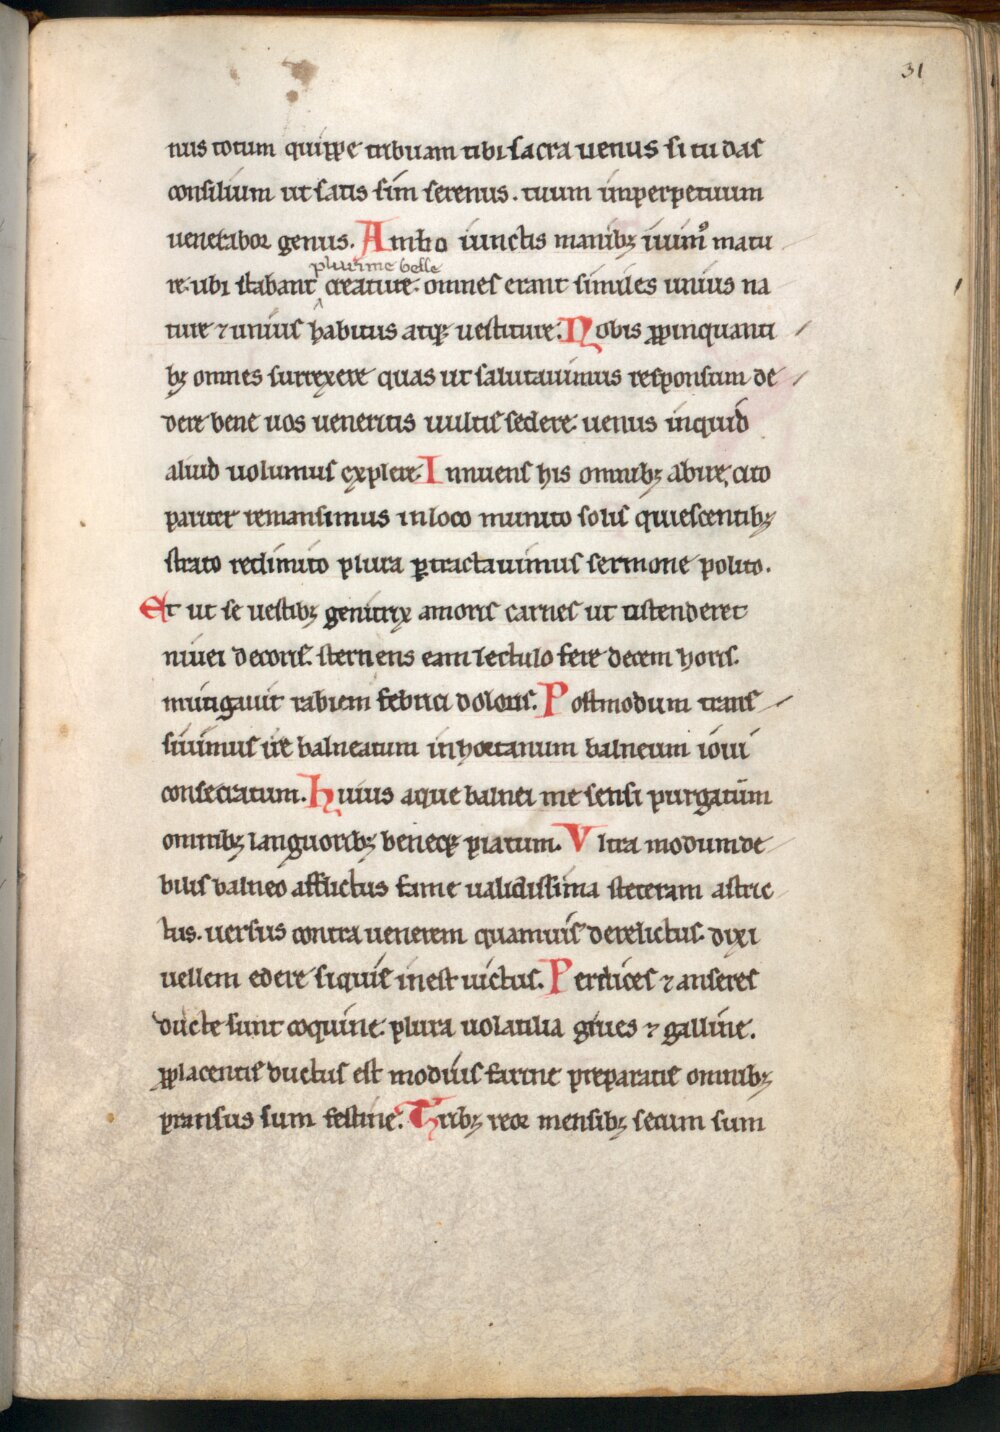 31
nus totum quippe tribuam tibi sacra uenus si tu das
consilium ut satis sim serenus. tuum imperpetuum
uenerabor genus. Ambo iunctis manibꝫ iuimꝰ matu
plurime belle
re. ubi stabant creature. omnes erant similes unius na
ture ⁊ unius habitus atqꝫ uestiture. Nobis ꝓpinquanti
bꝫ omnes surrexere quas ut salutauimus responsum de
dere bene uos ueneritis uultis sedere. uenus inquid
aliud uolumus explere. Innuens his omnibꝫ abire, cito
pariter remansimus in loco munito solis quiescentibꝫ
strato redimito plura ꝑtractauimus sermone polito.
Et ut se uestibꝫ genitrix amoris carnes ut ostenderet
niuei decoris. sternens eam lectulo fere decem horis.
mitigauit rabiem febrici doloris. Postmodum trans
siuimus ire balneatum in hortanum balneum ioui
consecratum. Huius aque balnei me sensi purgatum
omnibꝫ languoribꝫ beneqꝫ piatum. Vltra modum de
bilis balneo afflictus fame ualidissima steteram astric
tus. uersus contra uenerem quamuis derelictus. dixi
uellem edere siquis inest uictus. Perdices ⁊ anseres
ducte sunt coquine. plura uolatilia grues ⁊ galline.
ꝓ placentis ductus est modius farine preparatis omnibꝫ
pransus sum festine. Tribꝫ reor mensibꝫ secum sum